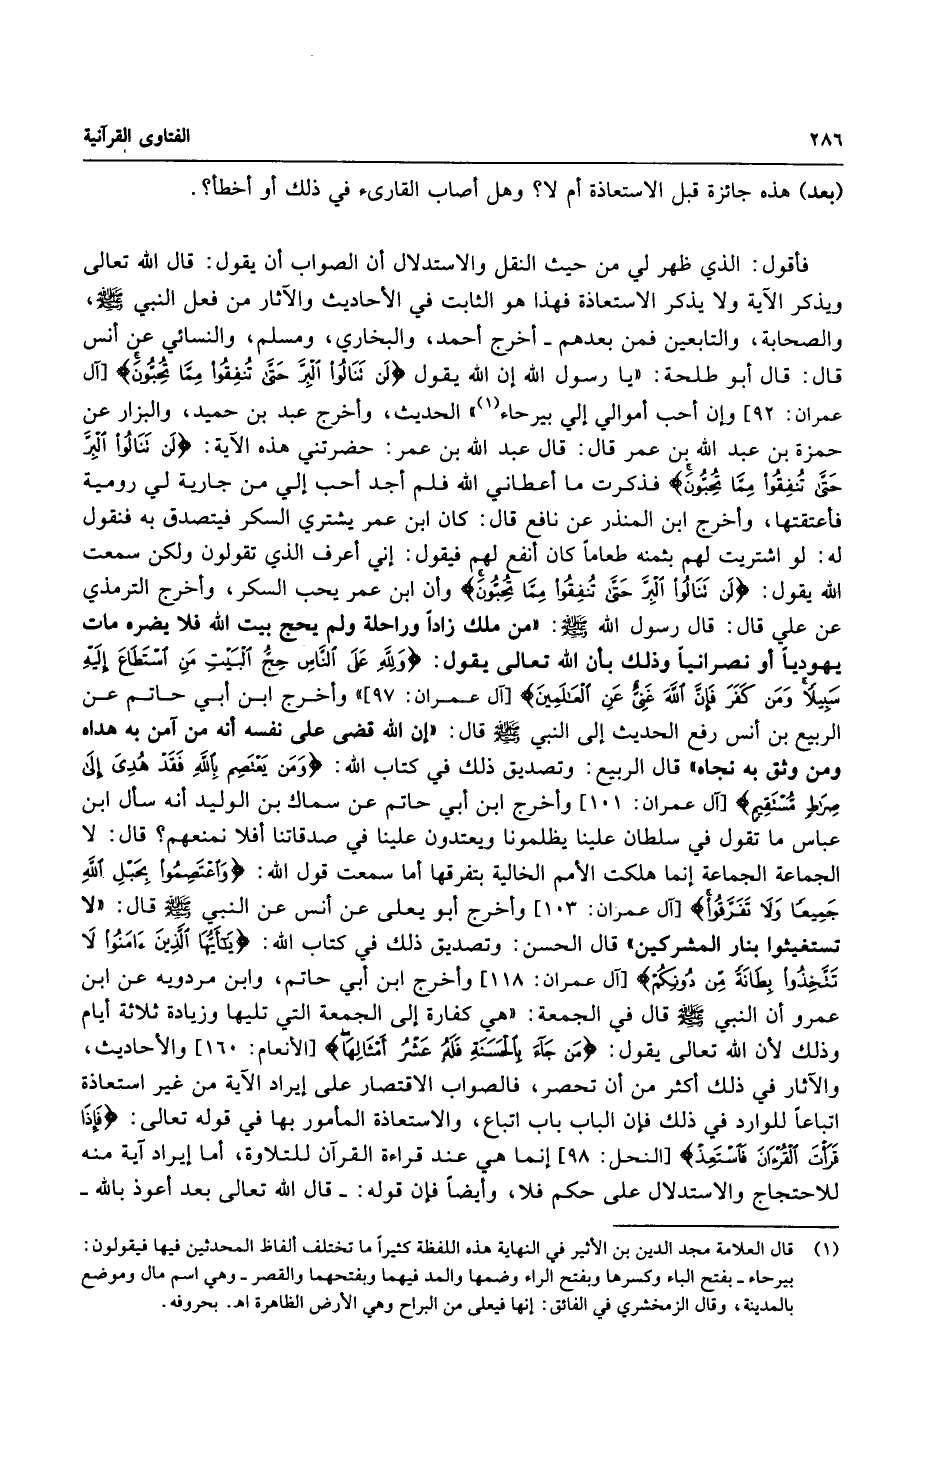 ٢٨٦
الفتاوى القرآنية
(بعد) هذه جائزة قبل الاستعاذة أم لا؟ وهل أصاب القارىء في ذلك أو أخطأ؟ .
فأقول: الذي ظهر لي من حيث النقل والاستدلال أن الصواب أن يقول: قال الله تعالى
ويذكر الآية ولا يذكر الاستعاذة فهذا هو الثابت في الأحاديث والآثار من فعل النبي ﷺ،
والصحابة، والتابعين فمن بعدهم ـ أخرج أحمد، والبخاري، ومسلم، والنسائي عن أنس
قال: قال أبو طلحة: «يا رسول الله إن الله يقول ﴿لَن نَنَالُوا۟ ٱلْبِرَّ حَتَّىٰ تُنفِقُوا۟ مِمَّا تُحِبُّونَۚ﴾ [آل
عمران: ٩٢] وإن أحب أموالي إلي بيرحاء(١)» الحديث، وأخرج عبد بن حميد، والبزار عن
حمزة بن عبد الله بن عمر قال: قال عبد الله بن عمر: حضرتني هذه الآية: ﴿لَن نَنَالُوا۟ ٱلْبِرَّ
حَتَّىٰ تُنفِقُوا۟ مِمَّا تُحِبُّونَۚ﴾ فذكرت ما أعطاني الله فلم أجد أحب إلي من جارية لي رومية
فأعتقتها، وأخرج ابن المنذر عن نافع قال: كان ابن عمر يشتري السكر فيتصدق به فنقول
له: لو اشتريت لهم بثمنه طعاماً كان أنفع لهم فيقول: إني أعرف الذي تقولون ولكن سمعت
الله يقول: ﴿لَن نَنَالُوا۟ ٱلْبِرَّ حَتَّىٰ تُنفِقُوا۟ مِمَّا تُحِبُّونَۚ﴾ وأن ابن عمر يحب السكر، وأخرج الترمذي
عن علي قال: قال رسول الله ﷺ: «من ملك زاداً وراحلة ولم يحج بيت الله فلا يضره مات
يهودياً أو نصرانياً وذلك بأن الله تعالى يقول: ﴿وَلِلَّهِ عَلَى ٱلنَّاسِ حِجُّ ٱلْبَيْتِ مَنِ ٱسْتَطَاعَ إِلَيْهِ
سَبِيلًاۚ وَمَن كَفَرَ فَإِنَّ ٱللَّهَ غَنِىٌّ عَنِ ٱلْعَٰلَمِينَ﴾ [آل عمران: ٩٧]» وأخرج ابن أبي حاتم عن
الربيع بن أنس رفع الحديث إلى النبي ﷺ قال: «إن الله قضى على نفسه أنه من آمن به هداه
ومن وثق به نجاه» قال الربيع: وتصديق ذلك في كتاب الله: ﴿وَمَن يَعْتَصِم بِٱللَّهِ فَقَدْ هُدِىَ إِلَىٰ
صِرَٰطٍ مُّسْتَقِيمٍ﴾ [آل عمران: ١٠١] وأخرج ابن أبي حاتم عن سماك بن الوليد أنه سأل ابن
عباس ما تقول في سلطان علينا يظلمونا ويعتدون علينا في صدقاتنا أفلا نمنعهم؟ قال: لا
الجماعة الجماعة إنما هلكت الأمم الخالية بتفرقها أما سمعت قول الله: ﴿وَٱعْتَصِمُوا۟ بِحَبْلِ ٱللَّهِ
جَمِيعًا وَلَا تَفَرَّقُوا۟ۚ﴾ [آل عمران: ١٠٣] وأخرج أبو يعلى عن أنس عن النبي ﷺ قال: «لا
تستغيثوا بنار المشركين» قال الحسن: وتصديق ذلك في كتاب الله: ﴿يَٰٓأَيُّهَا ٱلَّذِينَ ءَامَنُوا۟ لَا
تَتَّخِذُوا۟ بِطَانَةً مِّن دُونِكُمْ﴾ [آل عمران: ١١٨] وأخرج ابن أبي حاتم، وابن مردويه عن ابن
عمرو أن النبي ﷺ قال في الجمعة: «هي كفارة إلى الجمعة التي تليها وزيادة ثلاثة أيام
وذلك لأن الله تعالى يقول: ﴿مَن جَآءَ بِٱلْحَسَنَةِ فَلَهُۥ عَشْرُ أَمْثَالِهَاۖ﴾ [الأنعام: ١٦٠] والأحاديث،
والآثار في ذلك أكثر من أن تحصر، فالصواب الاقتصار على إيراد الآية من غير استعاذة
اتباعاً للوارد في ذلك فإن الباب باب اتباع، والاستعاذة المأمور بها في قوله تعالى: ﴿فَإِذَا
قَرَأْتَ ٱلْقُرْءَانَ فَٱسْتَعِذْ﴾ [النحل: ٩٨] إنما هي عند قراءة القرآن للتلاوة، أما إيراد آية منه
للاحتجاج والاستدلال على حكم فلا، وأيضاً فإن قوله: ـ قال الله تعالى بعد أعوذ بالله ـ
(١) قال العلامة مجد الدين بن الأثير في النهاية هذه اللفظة كثيراً ما تختلف ألفاظ المحدثين فيها فيقولون:
بيرحاء ـ بفتح الباء وكسرها وبفتح الراء وضمها والمد فيهما وبفتحهما والقصر ـ وهي اسم مال وموضع
بالمدينة، وقال الزمخشري في الفائق: إنها فيعلى من البراح وهي الأرض الظاهرة اهـ. بحروفه.